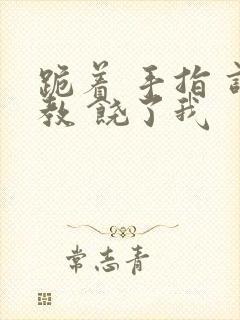 跪着 手指
教 饶了我
常志青